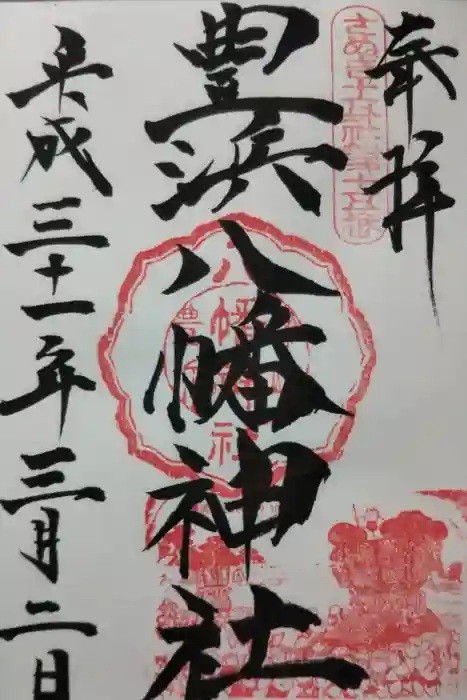 奉拝
さぬき十五社第十五番
豊浜八幡神社
八幡神社
豊浜
平成三十一年三月二日